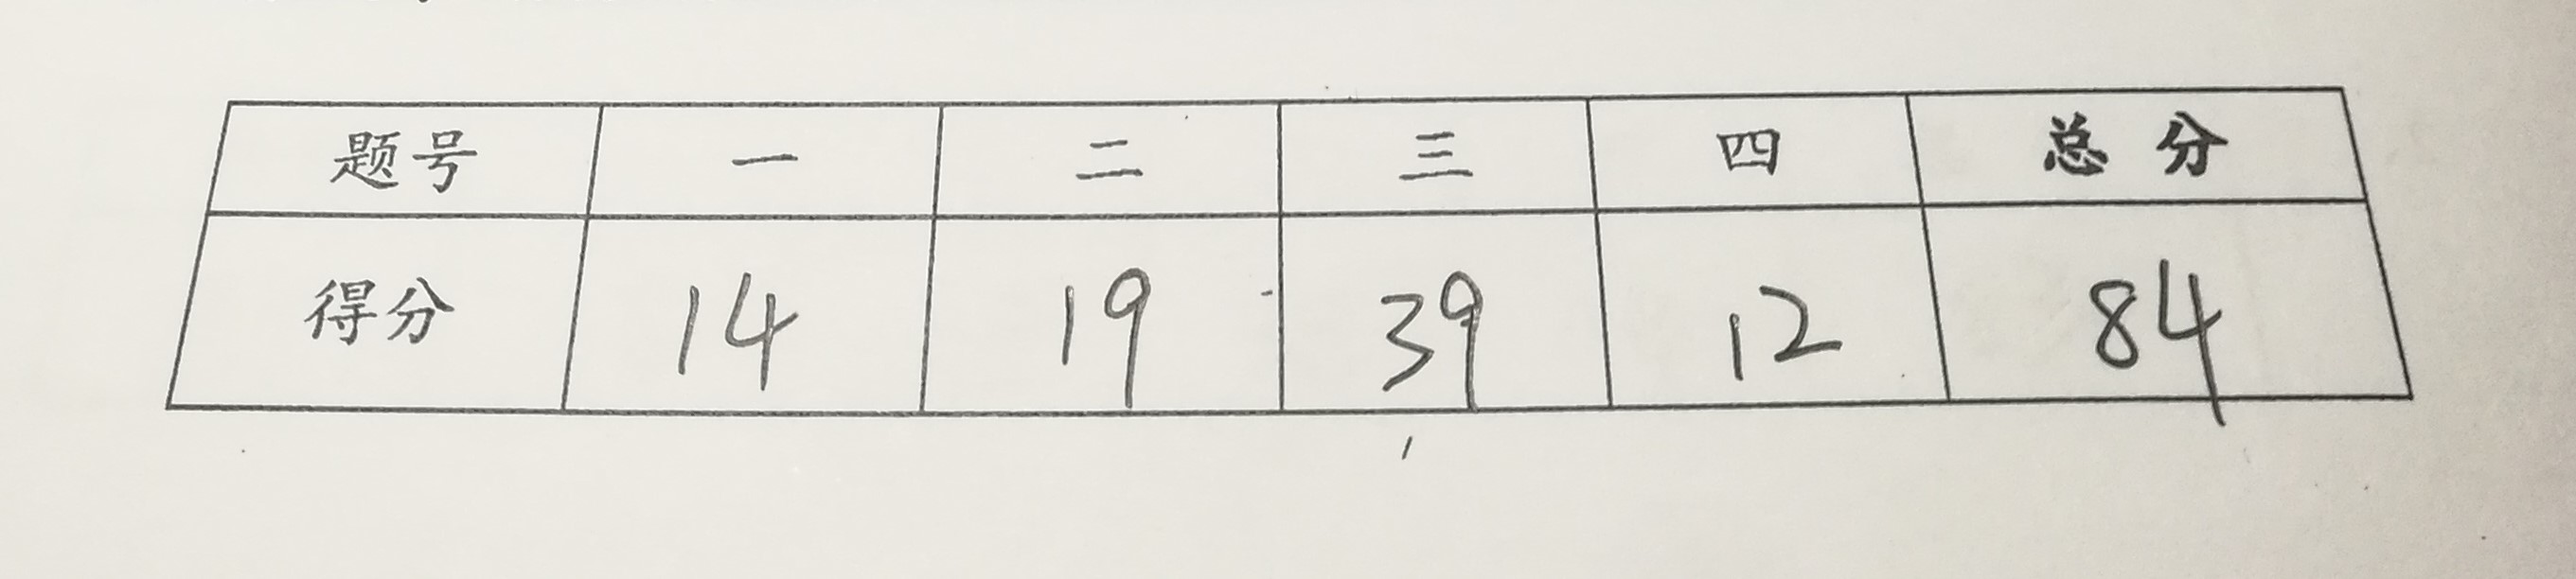 题号 一 二 三 四 总分
得分 14 19 39 12 84